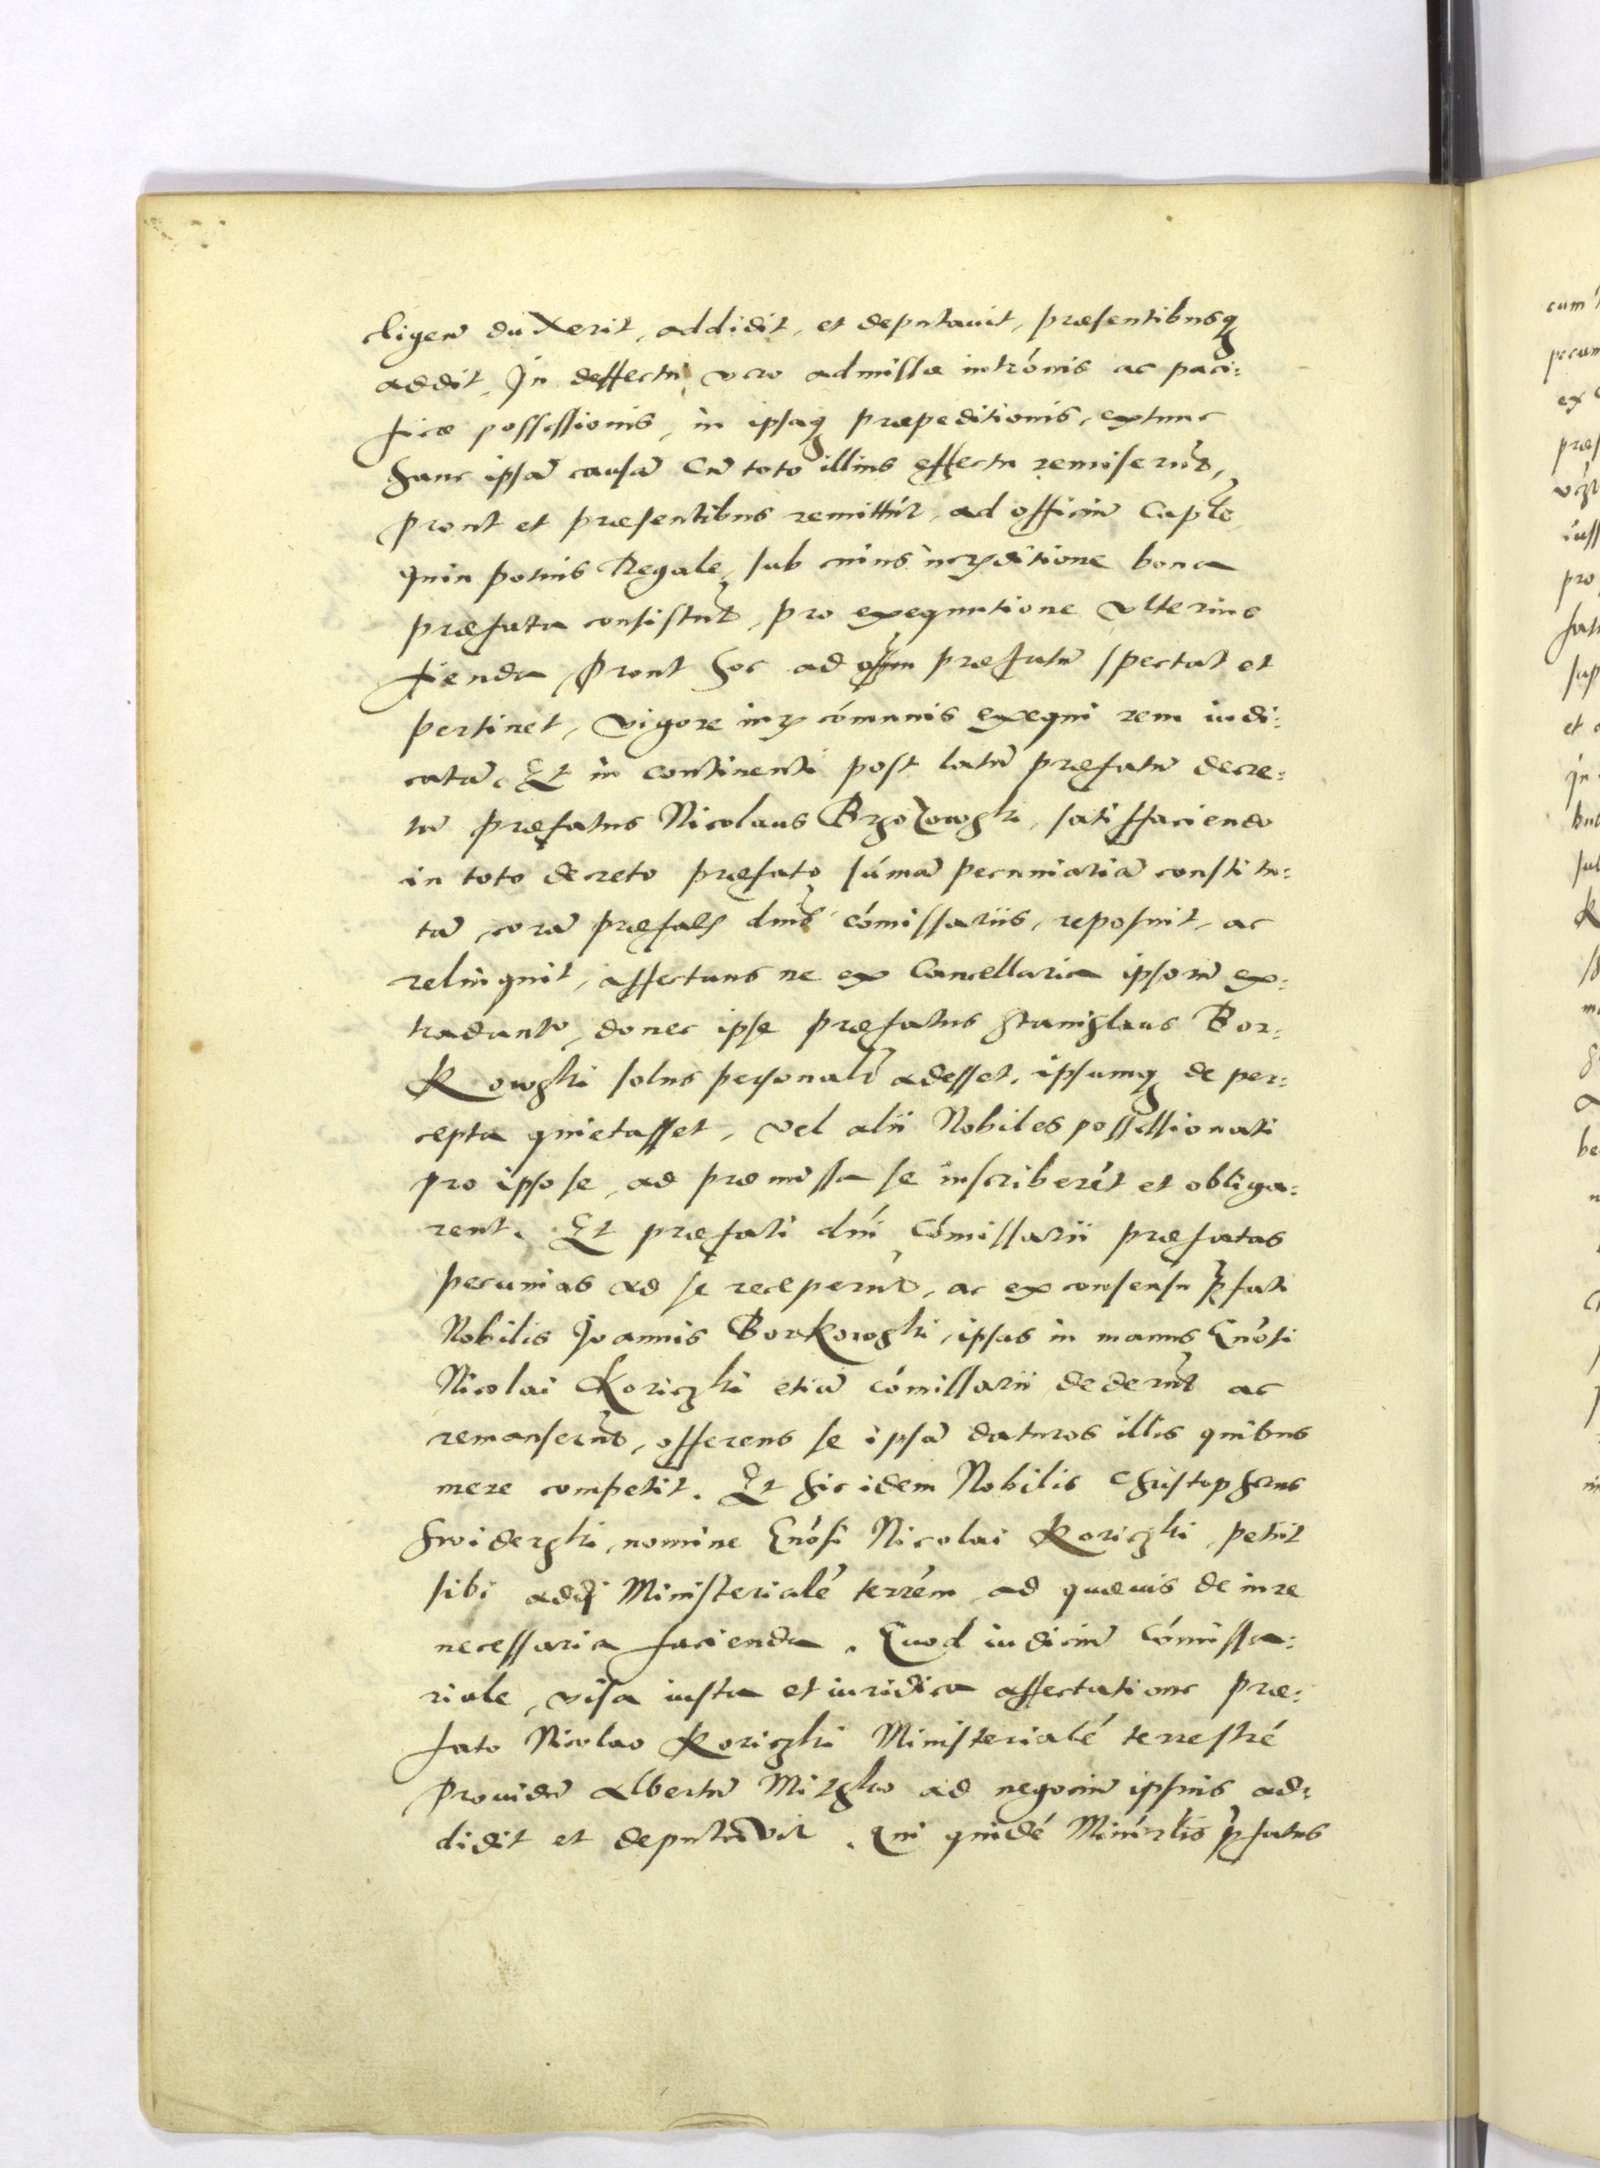 eligen̄ duxerit, addidit, et deputauit, præsentibusq
addit. In deffectu vero admissæ intrómis ac paci:
ficæ possessionis, in ipsaq præpeditionis, extunc
hanc ipsā causā cū toto illius effectu remiserūt,
prout et præsentibus remittūt, ad officiū
quin potius Regale, sub cuius bona
præfata consistūt, pro exequutione vlterius
fienda, prout hoc ad præfatū spectat et
pertinet, vigore cómunis exequi rem iudi:
catā. Et in continenti post latū præfatū decre:
tū præfatus Nicolaus Brzozowski, satisffaciendo
in toto decreto præfato, súmā pecuniariā constitu:
tā, corā dnis cómissariis, reposuit, ac
relinquit, affectans ne ex Cancellaria ipsorū ex:
tradantr, donec ipse præfatus Stanislaus Bor:
Kowski solus personalr adesset, ipsumq de per:
cepta quietasset, vel alii Nobiles possessionati
pro ipso se, ad præmissa se inscriberét et obliga:
rent. Et præfati dni Cómissarii præfatas
pecunias ad se receperūt, ac ex consensu pfati
Nobilis Joannis Borkowski, ipsas in manus Gnósi
Nicolai Koriczki etiā cómissarii dederūt ac
remanserūt, offerens se ipsā daturos illis quibus
mere competit. Et hic idem Nobilis Christophorus
nomine Gnósi Nicolai Koriczki, petiit
sibi addi Ministerialé terrém ad quæuis de iure
necessaria facienda. Quod iudiciū Cómissa:
riale, visa iusta et iuridica affectatione præ:
fato Nicolao Koriczki Ministerialé terrestré
prouidū Albertū ad negociū ipsius ad:
didit et deputavit. Qui quidé pfatus